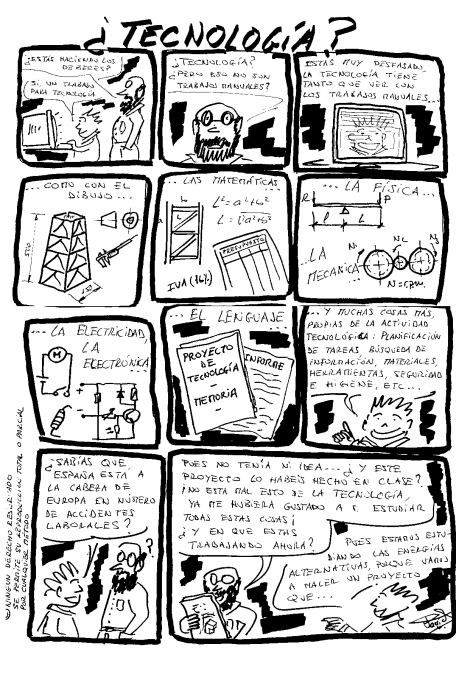 ¿TECNOLOGÍA?
¿ESTÁS HACIENDO LOS
DEBERES?
SI, UN TRABAJO
PARA TECNOLOGÍA
¿TECNOLOGÍA?
¿PERO ESO NO SON
TRABAJOS MANUALES?
ESTAS MUY DESFASADO
LA TECNOLOGÍA TIENE
TANTO QUE VER CON
LOS TRABAJOS MANUALES...
...COMO CON EL
DIBUJO...
...LAS MATEMÁTICAS
a
b
L
L²=a²+b²
PRESUPUESTO
IVA (16%)
...LA FÍSICA...
R
P
l
L
...LA
MECÁNICA
N1
N2
N3
...LA ELECTRICIDAD,
LA
ELECTRÓNICA
M
...EL LENGUAJE...
PROYECTO
DE
TECNOLOGÍA
-
MEMORIA
-
INFORME
...Y MUCHAS COSAS MÁS,
PROPIAS DE LA ACTIVIDAD
TECNOLÓGICA: PLANIFICACIÓN
DE TAREAS, BÚSQUEDA DE
INFORMACIÓN, MATERIALES,
HERRAMIENTAS, SEGURIDAD
E HIGIENE, ETC...
¿SABÍAS QUE
ESPAÑA ESTA A
LA CABEZA DE
EUROPA EN NÚMERO
DE ACCIDENTES
LABORALES?
?
PUES NO TENÍA NI IDEA...¿Y ESTE
PROYECTO LO HABEIS HECHO EN CLASE?
¡NO ESTA MAL ESTO DE LA TECNOLOGÍA,
YA ME HUBIERA GUSTADO A MÍ ESTUDIAR
TODAS ESTAS COSAS!
¿Y EN QUE ESTAS
TRABAJANDO AHORA?
PUES ESTAMOS ESTU-
DIANDO LAS ENERGÍAS
ALTERNATIVAS, PORQUE VAMOS
A HACER UN PROYECTO
QUE...
©NINGÚN DERECHO RESERVADO
SE PERMITE SU REPRODUCCIÓN TOTAL O PARCIAL
POR CUALQUIER MÉTODO